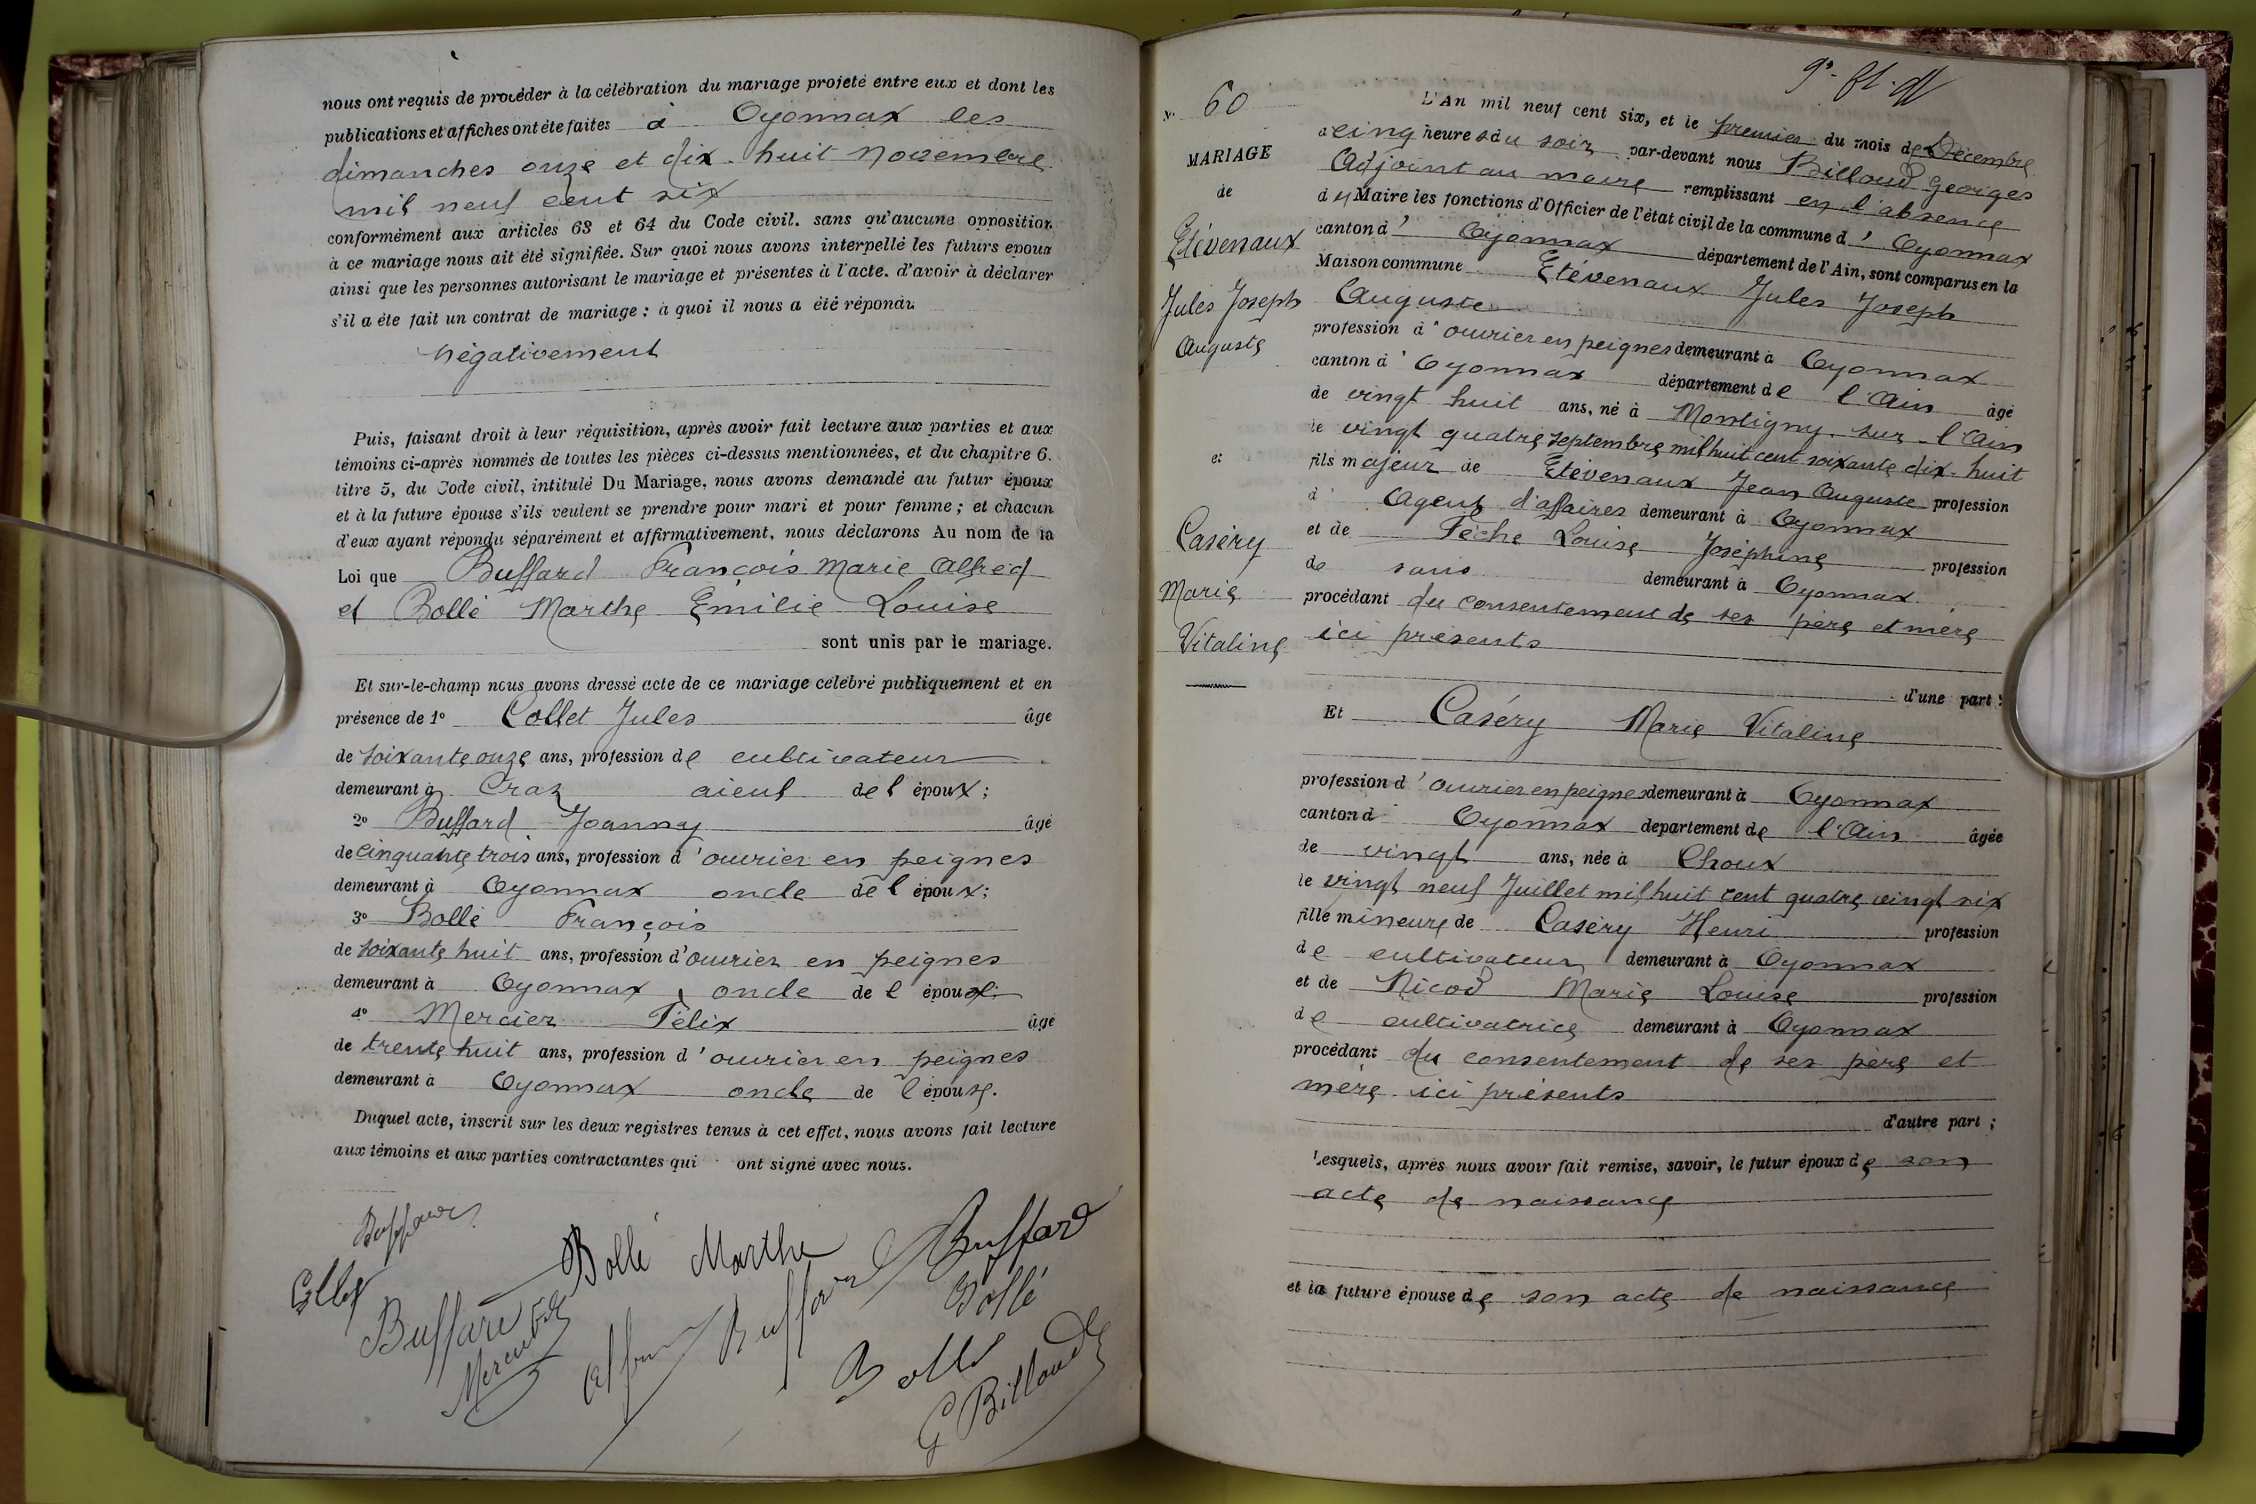 nous ont requis de procéder à la célébration du mariage projeté entre eux et dont les
publications et affiches ont été faites à Oyonnax les
dimanches onze et dix-huit Novembre
mil neuf cent six
conformément aux articles 63 et 64 du Code civil. sans qu'aucune opposition
à ce mariage nous ait été signifiée. Sur quoi nous avons interpellé les futurs époux
ainsi que les personnes autorisant le mariage et présentes à l'acte. d'avoir à déclarer
s'il a été fait un contrat de mariage ; à quoi il nous a été répondu
négativement
Puis, faisant droit à leur réquisition, après avoir fait lecture aux parties et aux
témoins ci-après nommés de toutes les pièces ci-dessus mentionnées, et du chapitre 6.
titre 5, du Code civil, intitulé Du Mariage, nous avons demandé au futur époux
et à la future épouse s'ils veulent se prendre pour mari et pour femme ; et chacun
d'eux ayant répondu séparément et affirmativement, nous déclarons Au nom de la
Loi que Buffard François Marie Alfred
et Bollé Marthe Emilie Louise
sont unis par le mariage.
Et sur-le-champ nous avons dressé acte de ce mariage célébré publiquement et en
présence de 1° Collet Jules âgé
de soixante onze ans, profession de cultivateur
demeurant à Craz aieul de l'époux ;
2° Buffard Joanny âgé
de cinquante trois ans, profession d'ouvrier en peignes
demeurant à Oyonnax oncle de l'époux ;
3° Bollé François
de soixante huit ans, profession d'ouvrier en peignes
demeurant à Oyonnax oncle de l'épouse
4° Mercier Félix âgé
de trente huit ans, profession d'ouvrier en peignes
demeurant à Oyonnax oncle de l'épouse.
Duquel acte, inscrit sur les deux registres tenus à cet effet, nous avons fait lecture
aux témoins et aux parties contractantes qui ont signé avec nous.
Bollé Marthe Buffard
Collet
Buffard Buffard Bollé
Bollé
G Billoud
N° 60
MARIAGE
de
Etévenaux
Jules Joseph
Auguste
et
Caséry
Marie
Vitaline
L'An mil neuf cent six, et le premier du mois de Décembre
à cinq heures du soir par-devant nous Billoud Georges
Adjoint au maire remplissant en l'absence
du Maire les fonctions d'Officier de l'état civil de la commune d'Oyonnax
canton d'Oyonnax département de l'Ain, sont comparus en la
Maison commune Etévenaux Jules Joseph
Auguste
profession d'ouvrier en peignes demeurant à Oyonnax
canton d'Oyonnax département de l'Ain âgé
de vingt huit ans, né à Montigny-sur-l'Ain
le vingt quatre septembre mil huit cent soixante dix-huit
fils majeur de Etévenaux Jean Auguste profession
d'Agent d'affaires demeurant à Oyonnax
et de Fèche Louise Joséphine profession
de sans demeurant à Oyonnax
procédant du consentement de ses père et mère
ici présents
d'une part ;
Et Caséry Marie Vitaline
profession d'ouvrier en peignes demeurant à Oyonnax
canton d'Oyonnax département de l'Ain âgée
de vingt ans, née à Choux
le vingt neuf Juillet mil huit cent quatre vingt six
fille mineure de Caséry Henri profession
de cultivateur demeurant à Oyonnax
et de Nicod Marie Louise profession
de cultivatrice demeurant à Oyonnax
procédant du consentement de ses père et
mère ici présents
d'autre part ;
Lesquels, après nous avoir fait remise, savoir, le futur époux de son
acte de naissance
et la future épouse de son acte de naissance